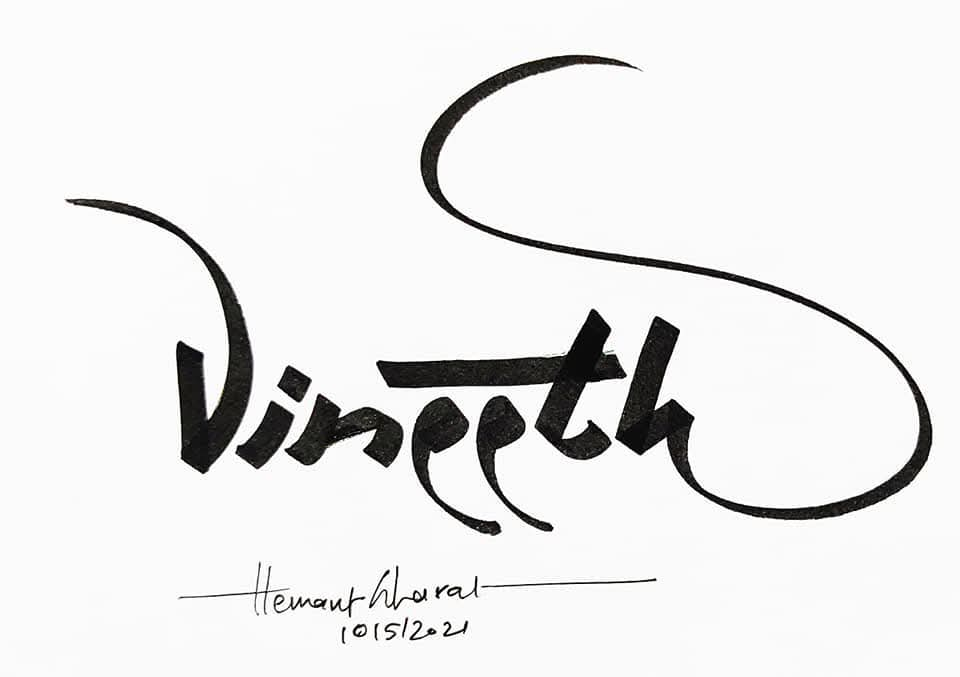 Vineeth
Hemant Gharat
10/5/2021